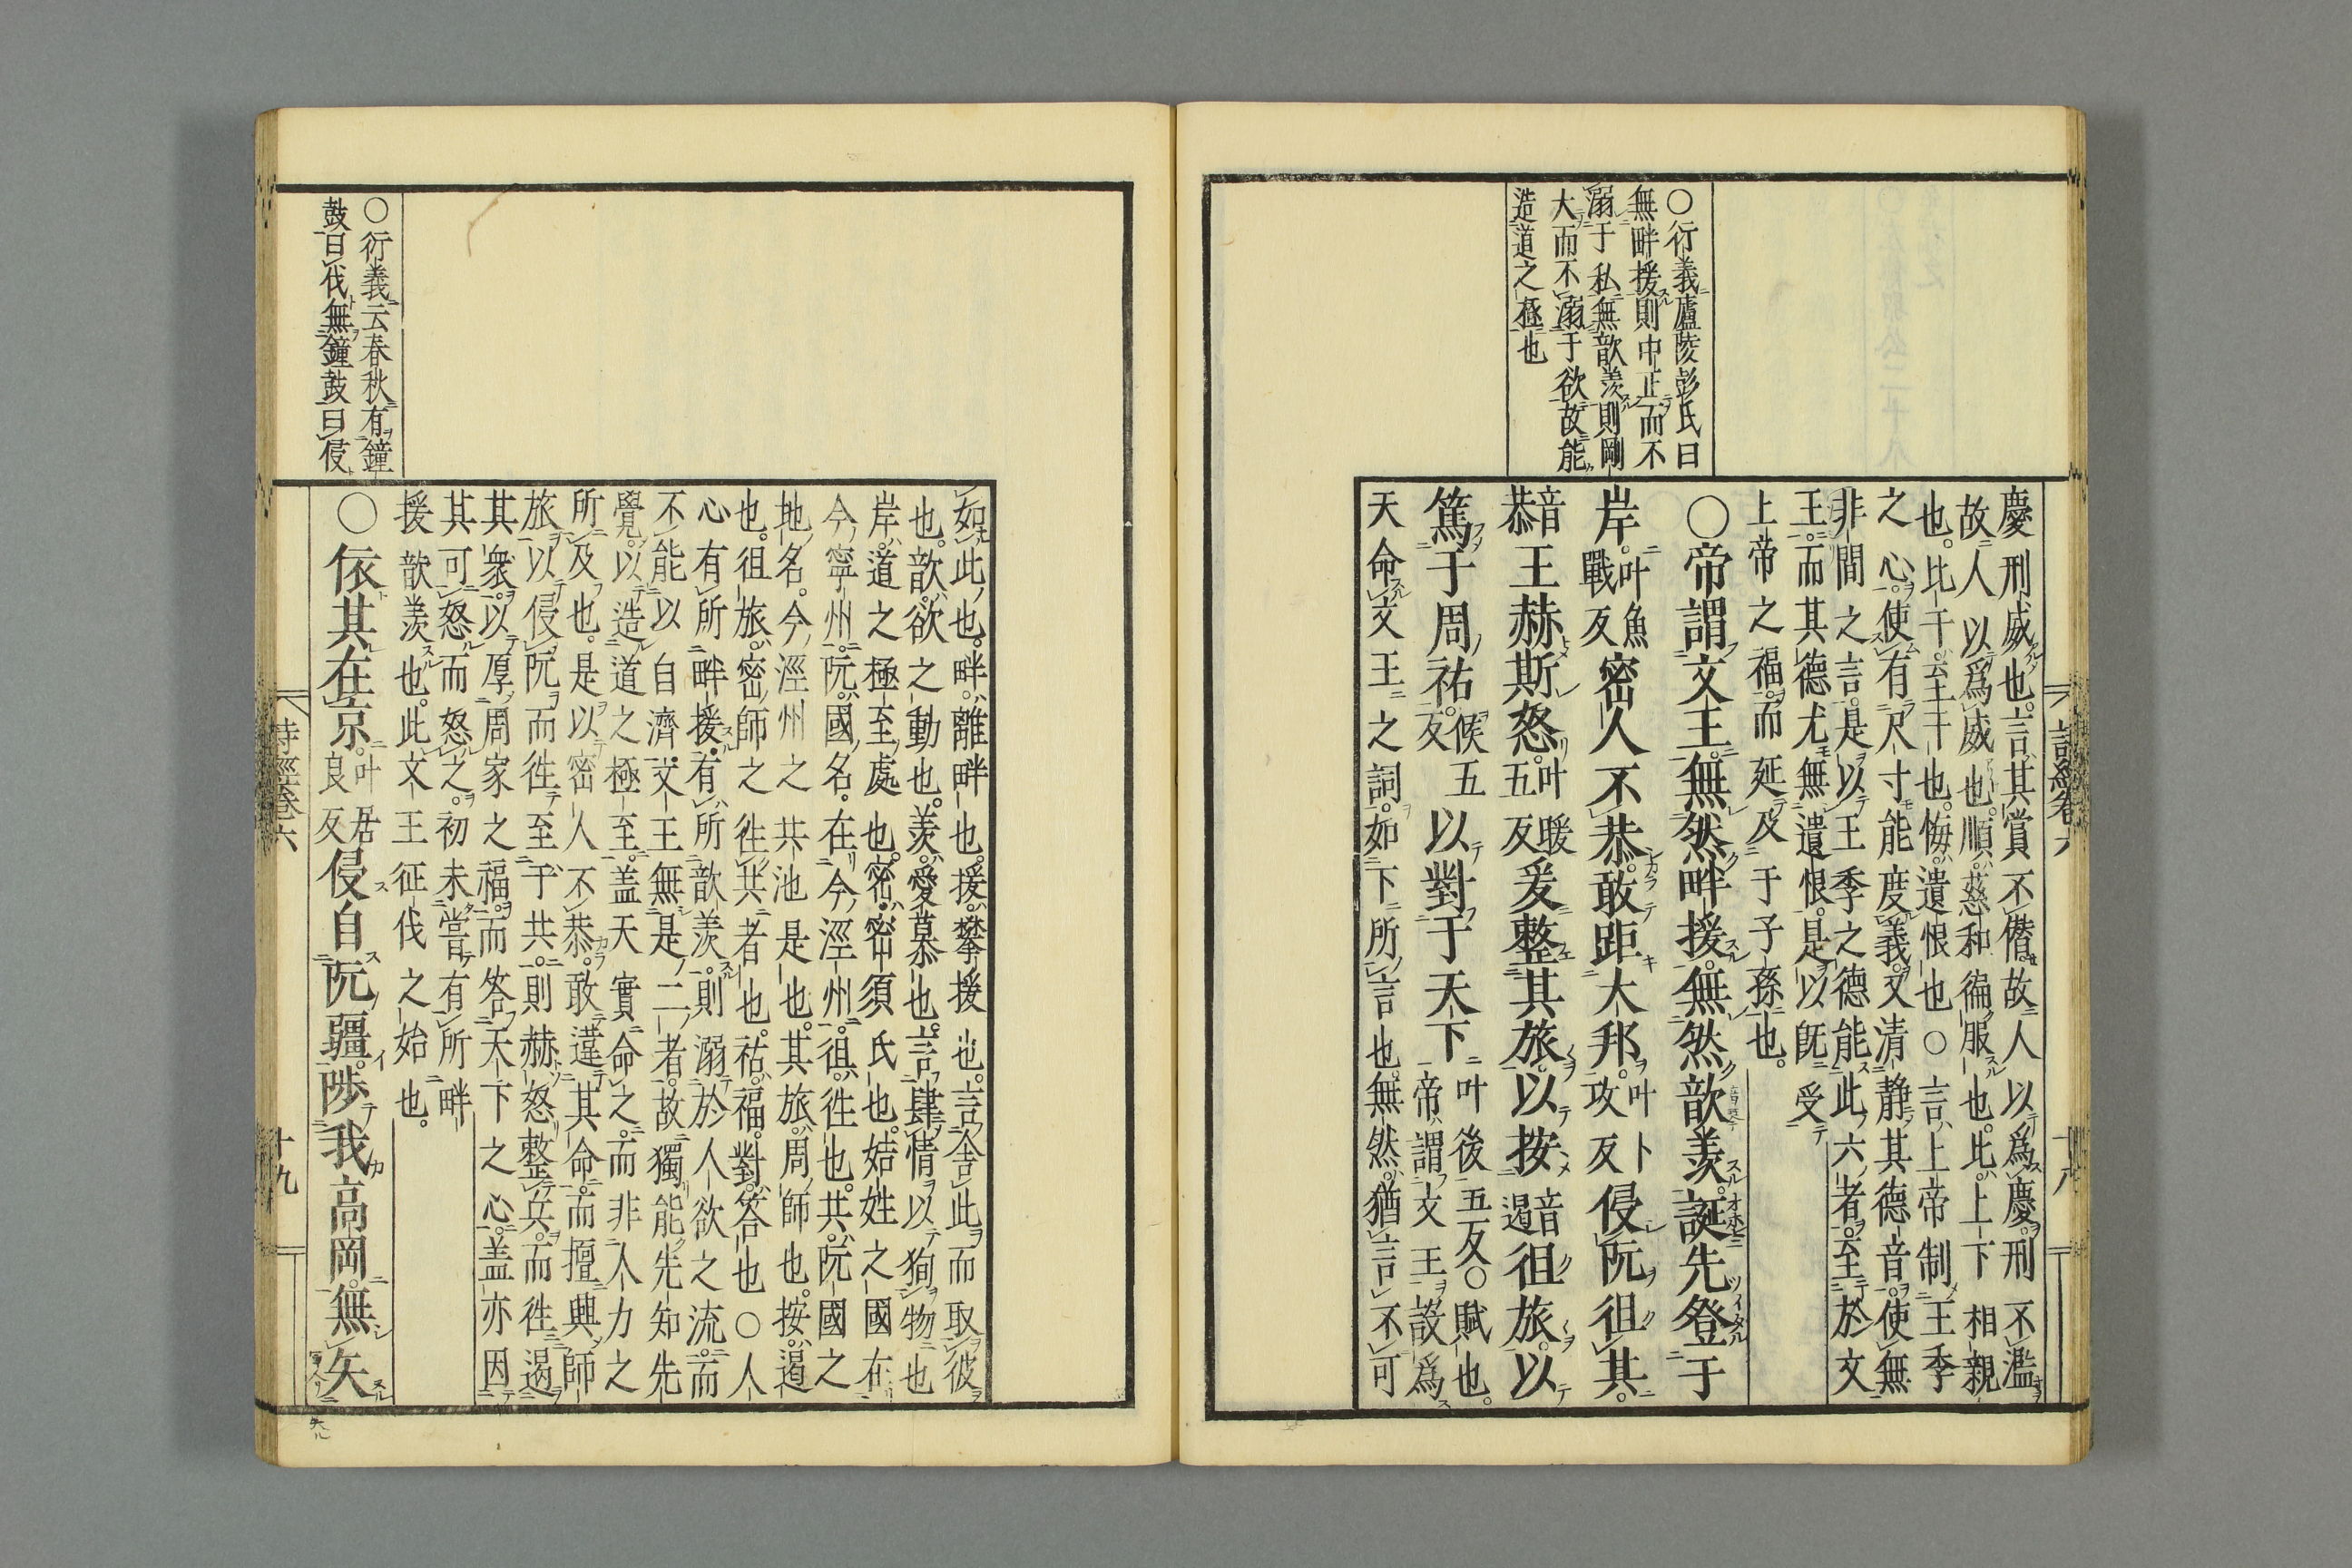 ○衍義廬陵彭氏曰
無畔援則中正而不
溺于私無歆羨則剛
大而不溺于欲故能
造道之極也
慶刑威也。言其賞不僭故人以爲慶。刑不濫
故人以爲威也。順。慈和徧服也。比。上下相親
也。比干。云王干也。悔。遺恨也○言上帝制王季
之心。使有尺寸能度義。又清静其德音。使無
非間之言。是以王季之德能此六者。至於文
王。而其德尤無遺恨。是以旣受
上帝之福。而延及于子孫也。
○帝謂文王。無然畔援。無然歆羨。誕先登于
岸。叶魚戰反密人不恭。敢距大邦。叶卜攻反侵阮徂共。
音恭王赫斯怒。叶暖五反爰整其旅。以按音遏徂旅。以
篤于周祜。候五反以對于天下叶後五反○賦也。帝謂文王。設爲
天命文王之詞。如下所言也。無然。猶言不可
詩經卷六
十八
如此也。畔。離畔也。援。攀援也。言舍此而取彼
也。歆。欲之動也。羨。愛慕也。言肆情以狥物也
岸。道之極至處也。密。密須氏也。姞姓之國。在
今寧州。阮。國名。在今涇州。徂。徃也。共。阮國之
地名。今涇州之共池是也。其旅。周師也。按。遏
也。徂旅。密師之徃共者也。祜。福。對。答也○人
心有所畔援。有所歆羨。則溺於人欲之流。而
不能以自濟。文王無是二者。故獨能先知先
覺。以造道之極至。盖天實命之。而非人力之
所及也。是以密人不恭。敢違其命。而擅興師
旅。以侵阮。而徃至于共。則赫怒整兵。而徃遏
其衆。以厚周家之福。而答天下之心。盖亦因
其可怒而怒之。初未嘗有所畔
援歆羨也。此文王征伐之始也。
○依其在京。叶居良反侵自阮疆。陟我高岡。無矢
○衍義云春秋有鐘
鼓曰伐無鐘鼓曰侵
詩經卷六
十九